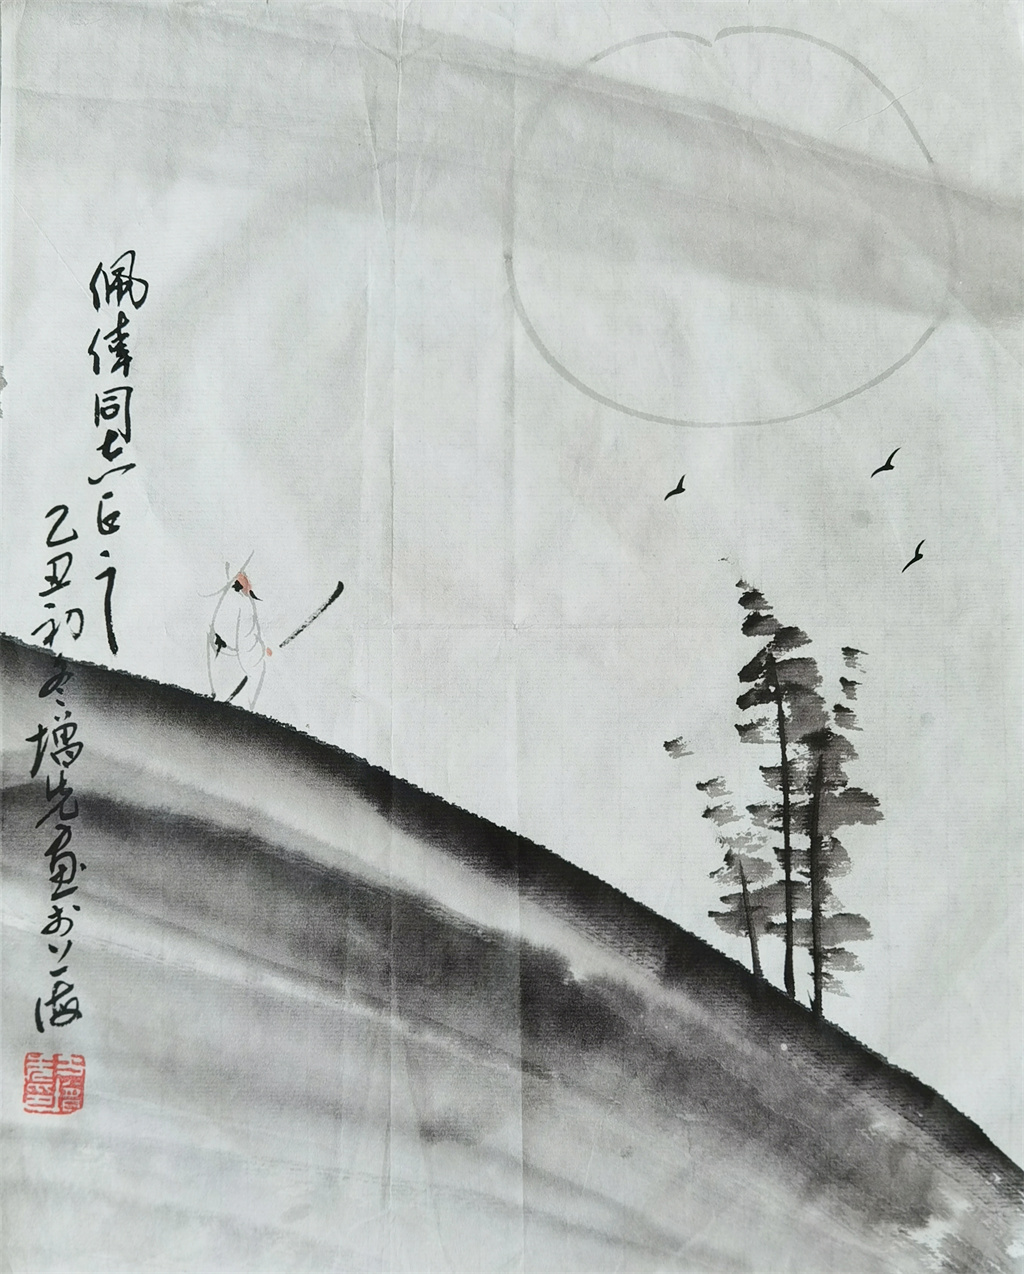 佩伟同志正之
乙丑初冬增先画于上海